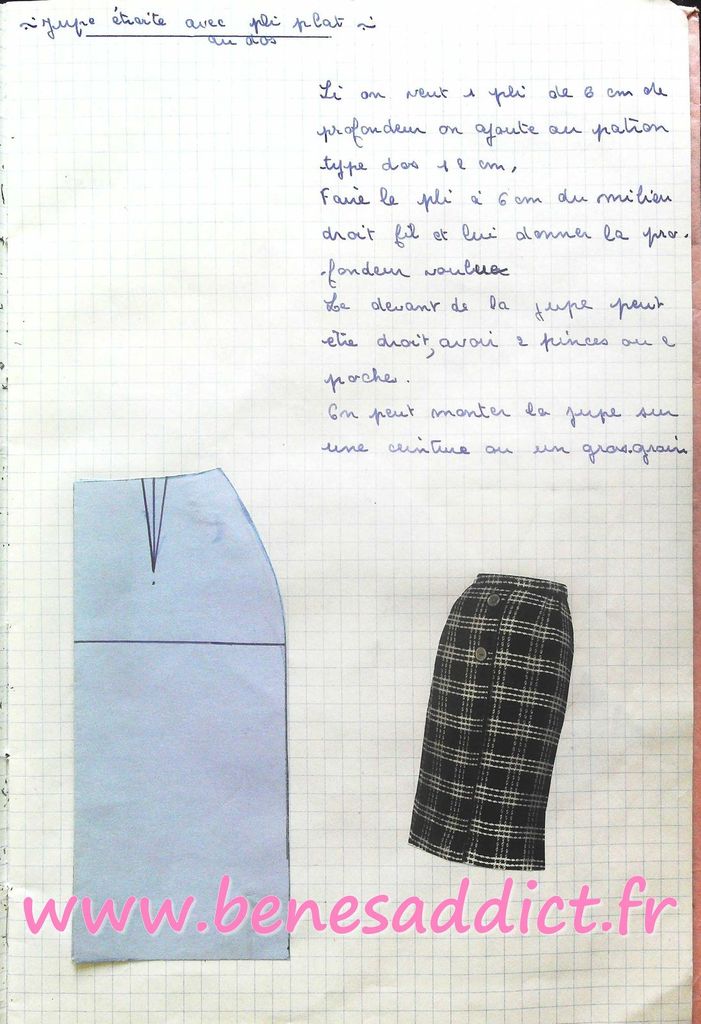 ~ Jupe étroite avec pli plat ~
au dos
Si on veut 1 pli de 6 cm de
profondeur on ajoute au patron
type dos 12 cm,
Faire le pli à 6 cm du milieu
droit fil et lui donner la pro-
-fondeur voulue
Le devant de la jupe peut
être droit, avoir 2 pinces ou 2
poches.
On peut monter la jupe sur
une ceinture ou un gros.grain
www.benesaddict.fr